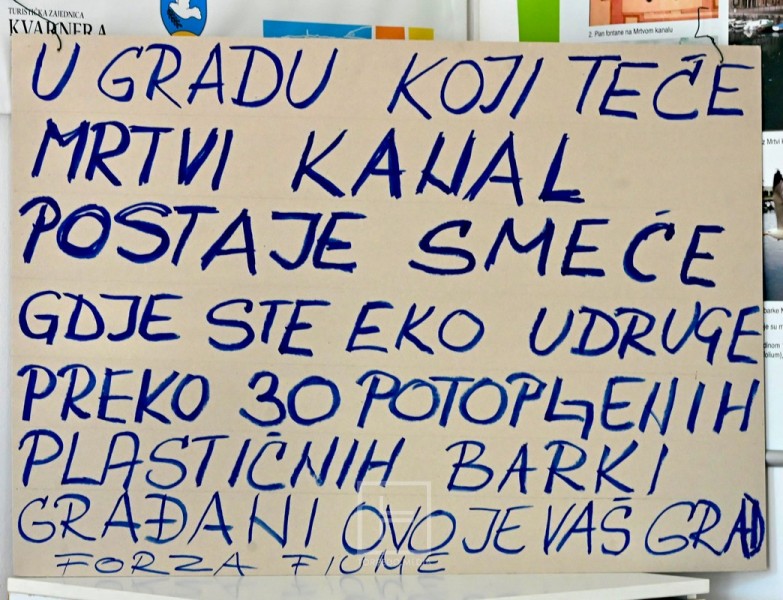 TURISTIČKA ZAJEDNICA
KVARNERA
2. Plan fontane na Mrtvom kanalu
U GRADU KOJI TEČE
MRTVI KANAL
POSTAJE SMEĆE
GDJE STE EKO UDRUGE
PREKO 30 POTOPLJENIH
PLASTIČNIH BARKI
GRAĐANI OVO JE VAŠ GRAD
FORZA FIUME